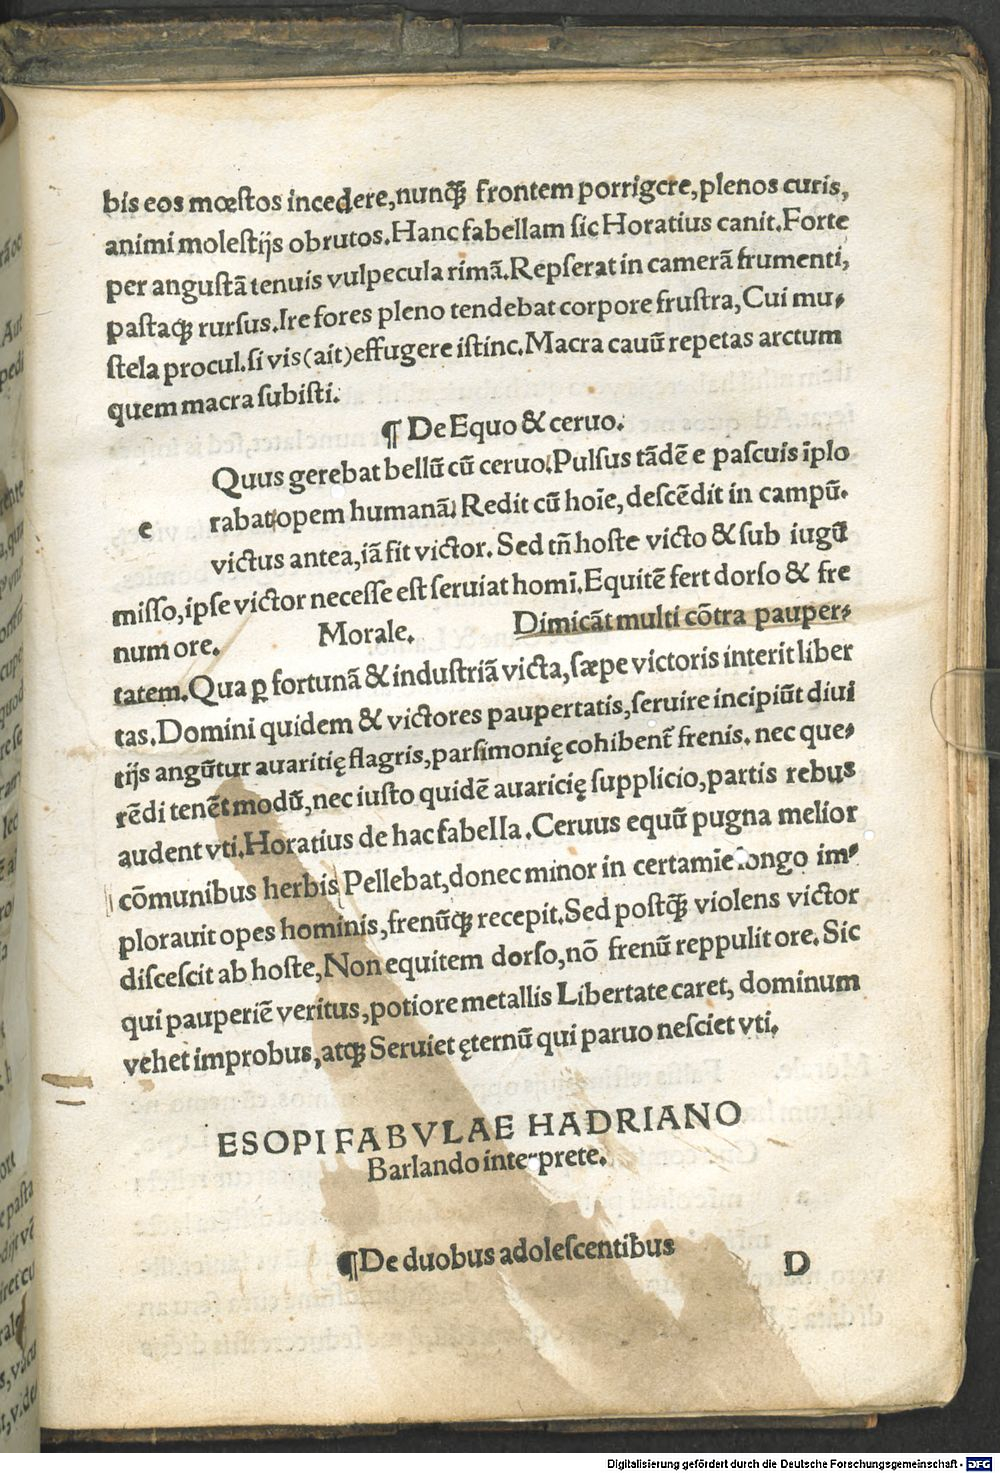 bis eos mœstos incedere,nunq̃ȝ frontem porrigere,plenos curis,
animi molestijs obrutos.Hanc fabellam sic Horatius canit.Forte
per angustā tenuis vulpecula rimā.Repserat in camerā frumenti,
pastaqȝ rursus.Ire fores pleno tendebat corpore frustra,Cui mu-
stela procul.si vis(ait)effugere istinc.Macra cauū repetas arctum
quem macra subisti.
¶ De Equo & ceruo.
Quus gerebat bellū cū ceruo.Pulsus tādē e pascuis īplo
e rabat opem humanā. Redit cū hoīe,descēdit in campū.
victus antea,iā fit victor.Sed tñ hoste victo & sub iugū
misso,ipse victor necesse est seruiat homī.Equitē fert dorso & fre
num ore. Morale. Dimicāt multi cōtra pauper-
tatem.Qua ꝑ fortunā & industriā victa,sæpe victoris interit liber
tas.Domini quidem & victores paupertatis,seruire incipiūt diui
tijs angūtur auaritię flagris,parsimonię cohibent᷑ frenis. nec que-
rēdi tenēt modū,nec iusto quidē auaricię supplicio,partis rebus
audent vti.Horatius de hac fabella.Ceruus equū pugna melior
cōmunibus herbis Pellebat,donec minor in certamīe longo im-
plorauit opes hominis,frenūqȝ recepit.Sed postq̃ȝ violens victor
discescit ab hoste,Non equitem dorso,nō frenū reppulit ore.Sic
qui pauperiē veritus,potiore metallis Libertate caret, dominum
vehet improbus,atqȝ Seruiet ęternū qui paruo nesciet vti.
ESOPI FABVLAE HADRIANO
Barlando interprete.
¶De duobus adolescentibus
D
Digitalisierung gefördert durch die Deutsche Forschungsgemeinschaft - DFG